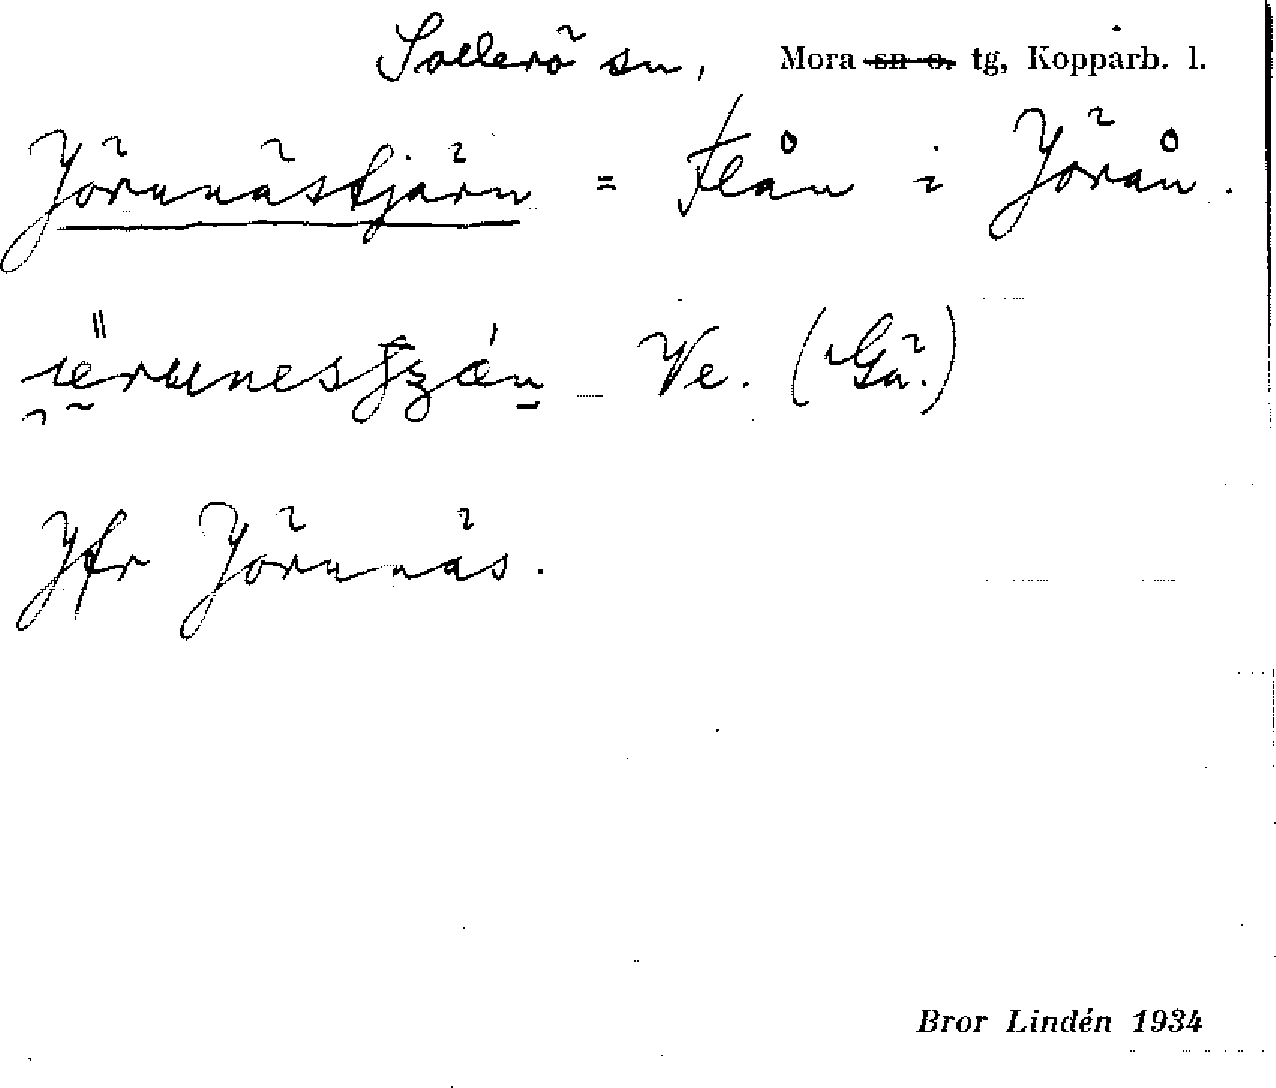 Sollerö sn, Mora sn o. tg, Kopparb. l.
Jörnnästjärn = Flån i Jörån.
Ve. (Gä.)
Jfr Jörnnäs.
Bror Lindén 1934